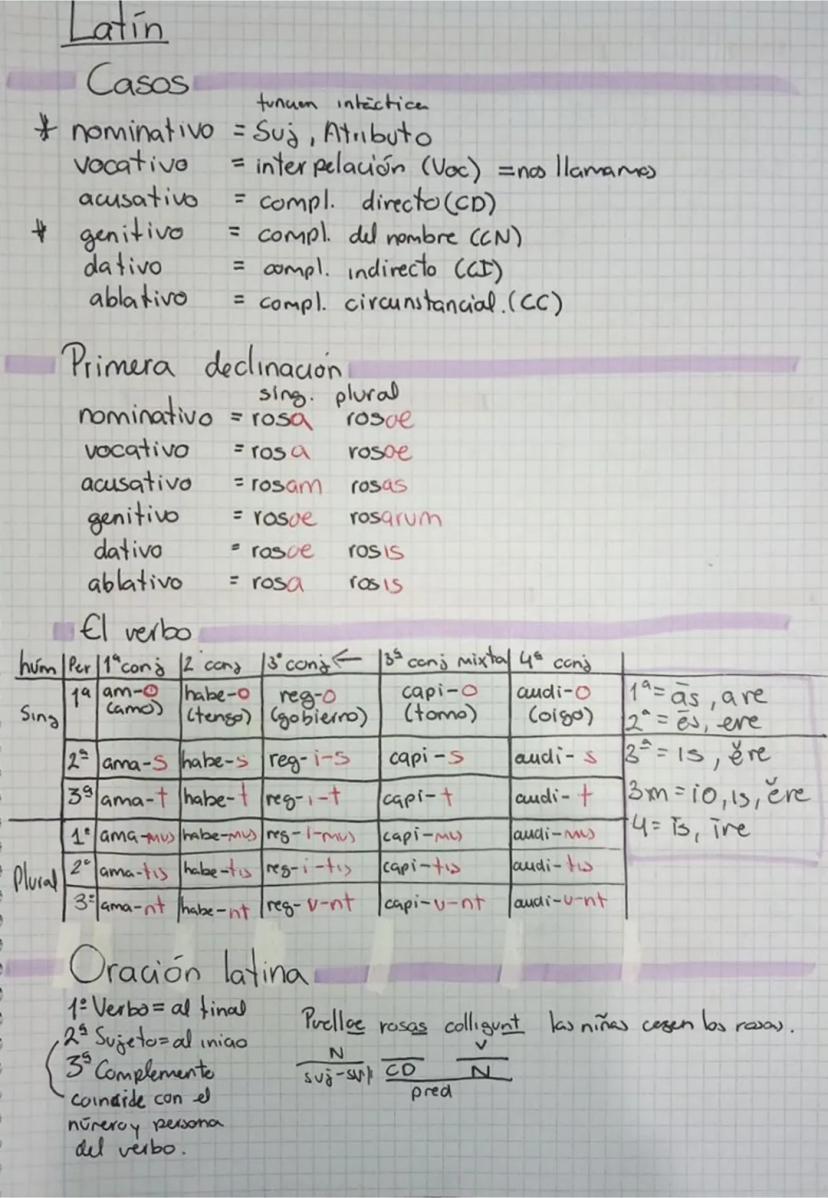 Latín
Casos
función intáctica
* nominativo = Suj, Atributo
vocativo = interpelación (Voc) = nos llamamos
acusativo = compl. directo (CD)
* genitivo = compl. del nombre (CN)
dativo = compl. indirecto (CI)
ablativo = compl. circunstancial. (CC)
Primera declinación
sing. plural
nominativo = rosa rosae
vocativo = rosa rosae
acusativo = rosam rosas
genitivo = rosae rosarum
dativo = rosae rosis
ablativo = rosa rosis
El verbo
núm Per 1ª conj 2 conj 3ª conj ← 3ª conj mixta 4ª conj
Sing 1ª am-o (amo) habe-o (tengo) reg-o (gobierno) capi-o (tomo) audi-o (oigo)
2ª ama-s habe-s reg-i-s capi-s audi-s
3ª ama-t habe-t reg-i-t capi-t audi-t
Plural 1ª ama-mus habe-mus reg-i-mus capi-mus audi-mus
2ª ama-tis habe-tis reg-i-tis capi-tis audi-tis
3ª ama-nt habe-nt reg-u-nt capi-u-nt audi-u-nt
1ª = ās, are
2ª = ēs, ere
3ª = is, ĕre
3m = io, is, ĕre
4 = īs, īre
Oración latina
1º Verbo = al final
2ª Sujeto = al inicio
3ª Complemento
coincide con el
número y persona
del verbo.
Puellae rosas colligunt las niñas cogen las rosas.
N V
suj-sn CD N
pred